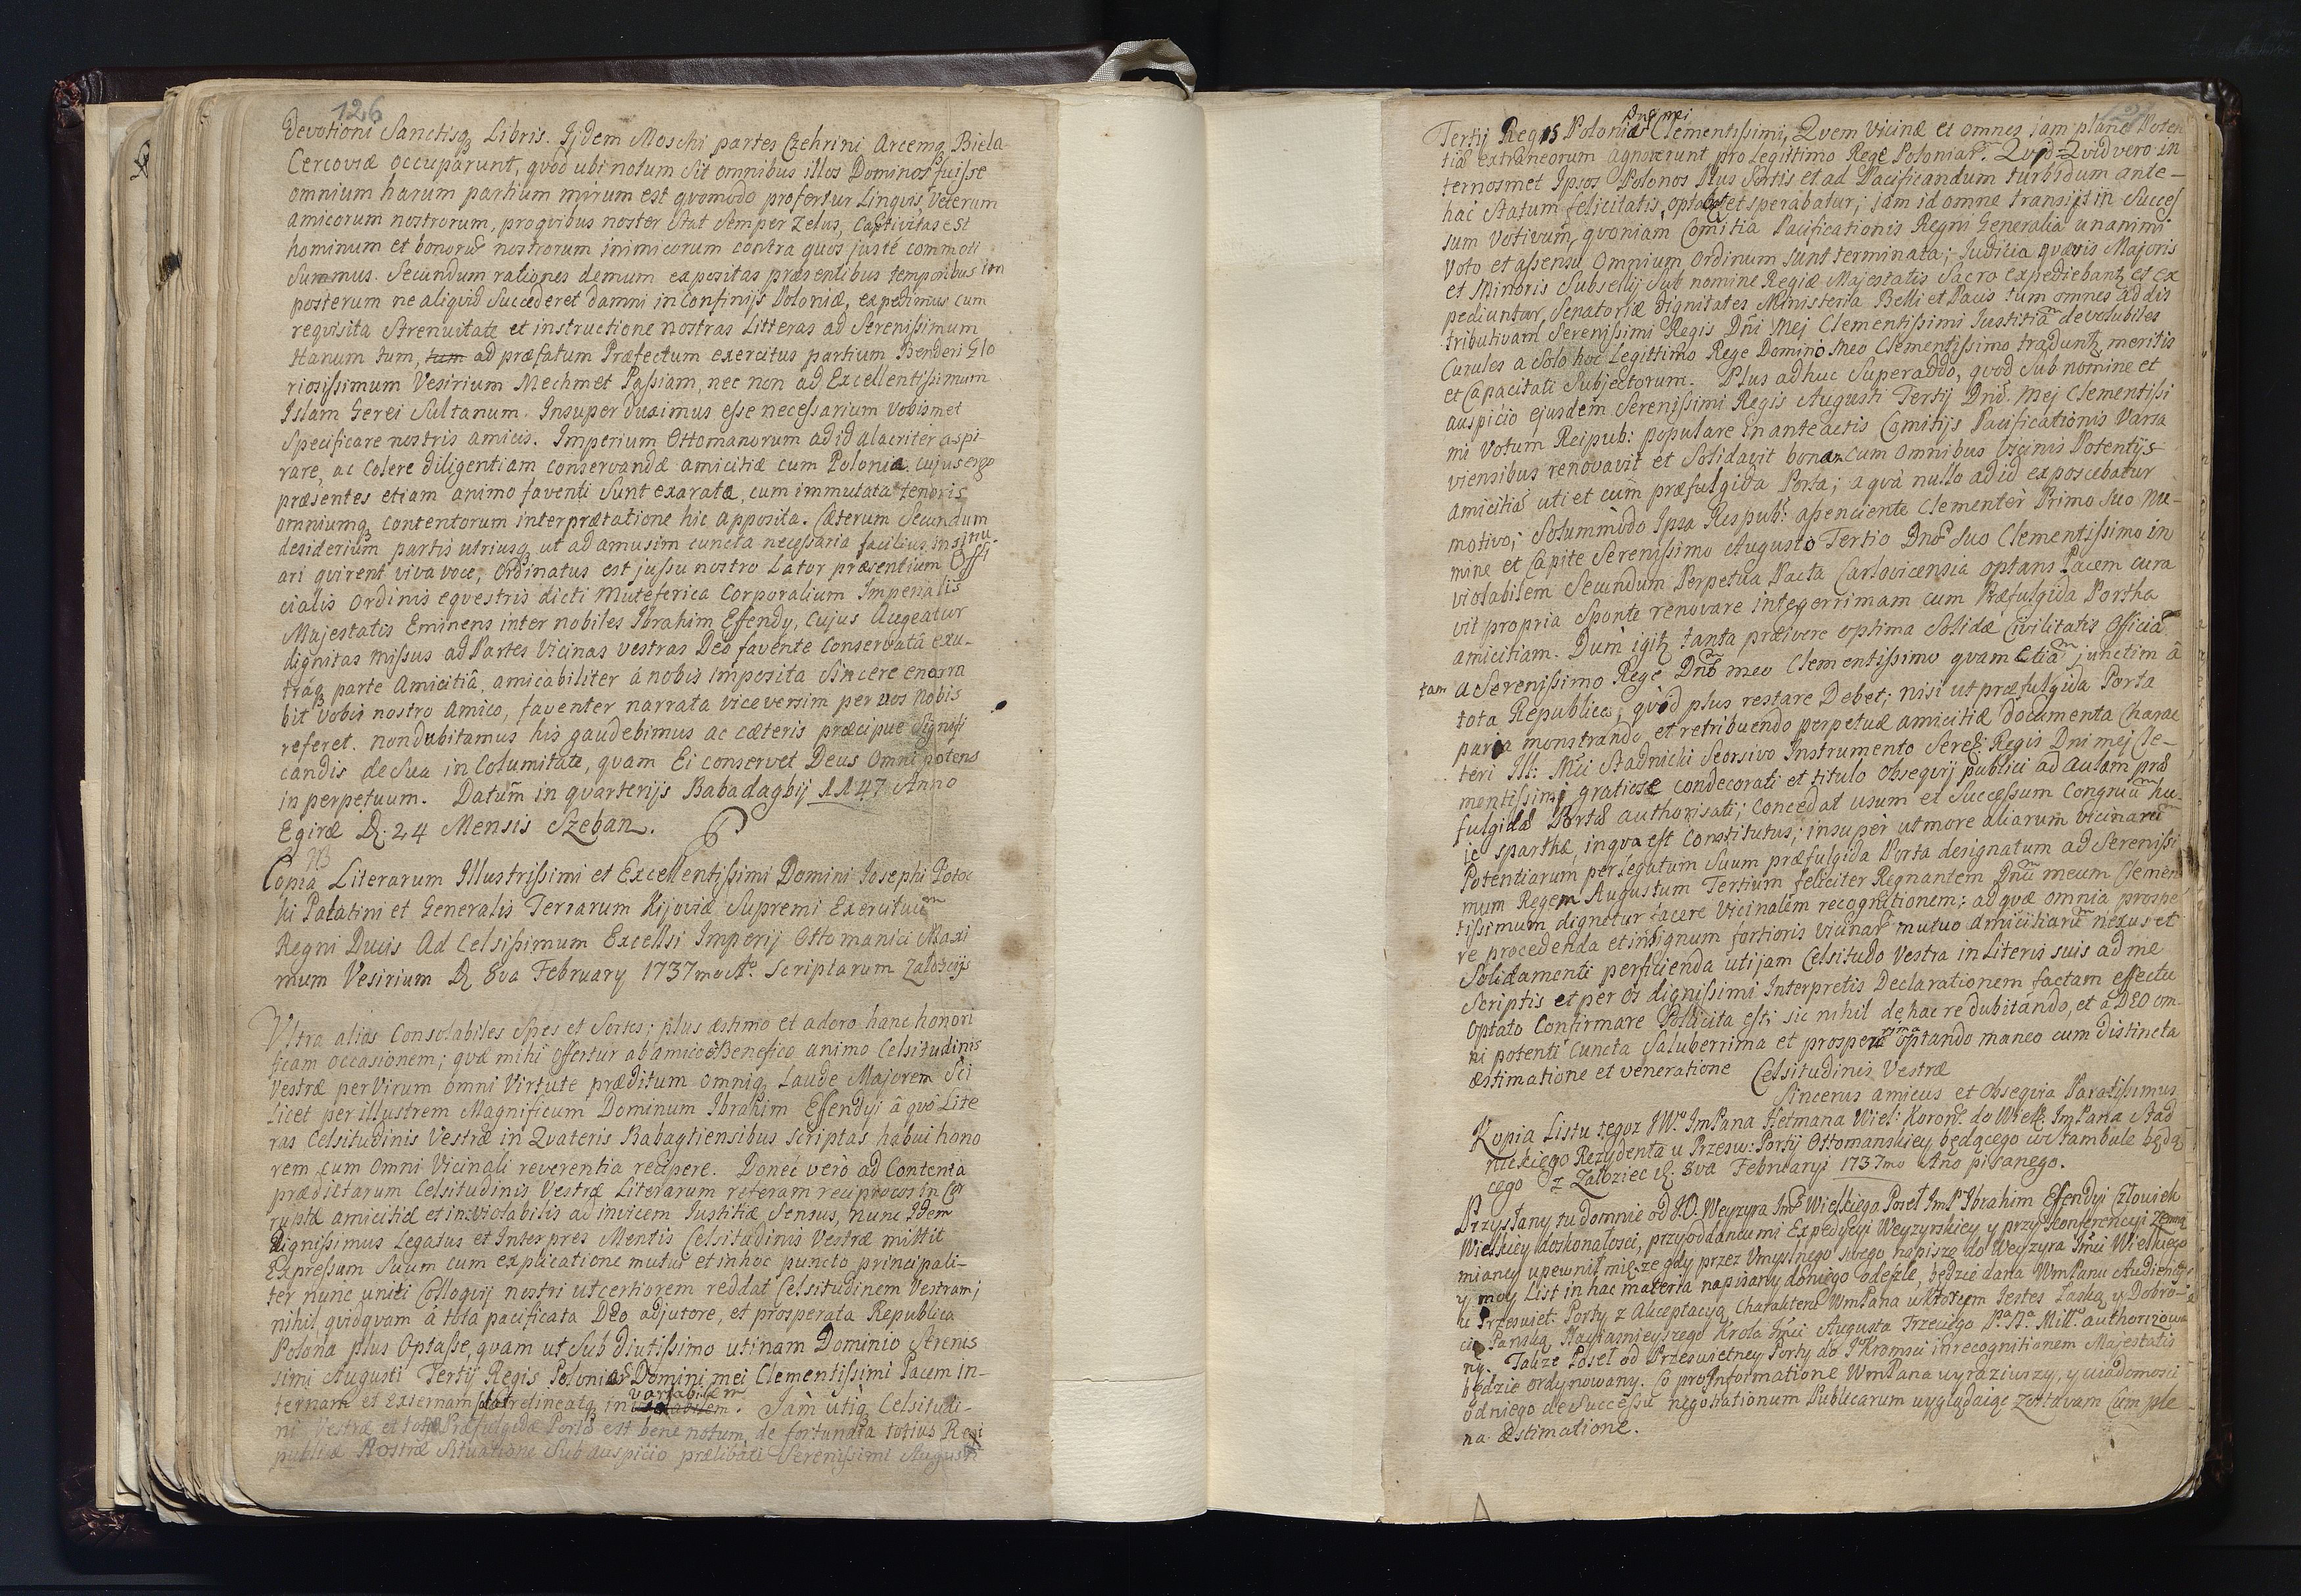 126
Devotioni Sanctisq Libris. Ijdem Moschi partes Czehrini Arcemq Biela
Cercoviæ occuparunt, qvod ubi notum sit omnibus illos Dominos fuisse
omnium harum partium mirum est qvomodo profertur Lingvis Veterum
amicorum nostrorum, proqvibus noster stat semper Zelus, Captivitas est
hominum et bonorum nostrorum inimicorum contra quos justé commoti
Summus. Secundum rationes demum expositas præsentibus temporibus in
posterum ne aliqvid succederet damni in Confinijs Poloniæ, expedimus cum
reqvisita Strenuitate et instructione nostras Litteras ad Serenissimum
Hanum tum, tum ad præfatum Præfectum exercitus partium Benderi Glo
riosissimum Vesirium Mechmet Passiam, nec non ad Excellentissimum
Islam Gerei Sultanum. Insuper duximus esse necessarium Vobismet
Specificare nostris amicis. Imperium Ottomanorum ad id alacriter aspi-
rare, ac Colere diligentiam conservandæ amicitiæ cum Polonia cujus ergo
præsentes etiam animo faventi Sunt exaratæ, cum immutata tenoris
omniumq contentorum interprætatione hic apposita. Cæterum Secundum
desiderium partis utriusq ut ad amusim cuncta necessaria facilius insinu-
ari qvirent viva voce, Ordinatus est jussu nostro Lator præsentium Offi
cialis Ordinis eqvestris dicti Muteferica Corporalium Imperialis
Majestatis Eminens inter nobiles Ibrahim Effendy, Cujus Augeatur
dignitas missus ad Partes Vicinas vestras Deo favente Conservatâ exu-
tráq parte Amicitiâ, amicabiliter á nobis imposita Sincere enarra
bit vobis nostro Amico, faventer narrata viceversim per vos nobis
referet. non dubitamus his gaudebimus ac cæteris præcipue Signifi
candis de Sua in Columitate, qvam Ei conservet Deus Omnipotens
in perpetuum. Datum in qvarterijs Babadagbij 1147 Anno
Egiræ D: 24 Mensis Szeban.
Copia Literarum Illustrissimi et Excellentissimi Domini Josephi Potoc
ki Palatini et Generalis Terrarum Kijoviæ Supremi Exercituum
Regni Ducis Ad Celsissimum Excelsi Imperij Ottomanici Maxi
mum Vesirium D 8va February 1737mo Ao. Scriptarum Załoscijs
Ultra alias Consolabiles Spes et Sortes; plus æstimo et adoro hanc honori
ficam occasionem; qvæ mihi offertur ab amico et Benefico animo Celsitudinis
Vestræ per Virum omni Virtute præditum omniq Laude Majorem Sci
licet per illustrem Magnificum Dominum Ibrahim Effendyi â qvo Lite
ras Celsitudinis Vestræ in Qvateris Babagtiensibus scriptas habui hono
rem cum Omni Vicinali reverentia recipere. Donec vero ad Contenta
prædictarum Celsitudinis Vestræ Literarum referam reciprocos in Cor
ruptæ amicitiæ et inviolabilis ad invicem Justitiæ Sensus, nunc Idem
Dignissimus Legatus et Interpres Mentis Celsitudinis Vestræ mittit
Expressum Suum cum explicatione mutui et in hoc puncto principali-
ter nunc uniti Colloqvij nostri ut certiorem reddat Celsitudinem Vestram;
nihil qvidqvam á tota pacificata Deo adjutore, et prosperata Republica
Polona plus Optasse, qvam ut Sub diutissimo utinam Dominio Serenis
simi Augusti Tertij Regis Poloniæ Domini mei Clementissimi Pacem in-
ternam et Externam retineatq in variabilem. Jàm útiq Celsitudi-
ni Vestræ et toti Præfulgidæ Portæ est bene notum, de fortunata totius Rei
publicæ Nostræ Situatione Sub auspicio prælibati Serenissimi Augusti
Tertij Regis Poloniæ Dni mei Clementissimi, Qvem Vicinæ et omnes jam plane Poten
tiæ extraneorum agnoverunt pro Legittimo Rege Poloniar. Qvid-Qvid vero in
ternosmet Ipsos Polonos Plus Sortis et ad Pacificandum turbidum ante-
hac Statum felicitatis, optabatur et sperabatur; jam id omne transijt in Succes
sum Votivum, qvoniam Comitia Pacificationis Regni Generalia unanimi
Voto et assensu Omnium Ordinum Sunt terminata; Judicia qvævis Majoris
et Minoris Subsellij Sub nomine Regiæ Majestatis Sacro expediebant et ex
pediuntur, Senatoriæ dignitates Ministeria Belli et Pacis tum omnes ad dis
tributivam Serenissimi Regis Dni Mej Clementissimi Justitiam devolubiles
Curules a Solo hoc Legittimo Rege Domino Meo Clementissimo tradunt meritis
et Capacitati Subjectorum. Plus adhuc Superaddo, qvod Sub nomine et
auspicio ejusdem Serenissimi Regis Augusti Tertij Dni Mej Clementissi
mi Votum Reipub: populare in anteactis Comitijs Pacificationis Varsa
viensibus renovavit et Solidavit bonam cum Omnibus Vicinis Potentijs
amicitiâ uti et cum præfulgida Porta; a qvâ nullo ad id exposcebatur
motivo; Solummodo Ipsa Respub: assenciente Clementer Primo Suo Nu-
mine et Capite Serenissimo Augusto Tertio Dno Suo Clementissimo in
violabilem Secundum Perpetua Pacta Carlovicensia optans Pacem cura
vit propria Sponte renovare integerrimam cum Præfulgida Portha
amicitiam. Dum igit tanta præivere optima Solidæ Civilitatis Officia
tam a Serenissimo Rege Dno meo Clementissimo qvam etiam junctim â
tota Republica; qvid plus restare Debet; nisi ut præfulgida Porta
paria monstrando, et retribuendo perpetuæ amicitiæ documenta Charac
teri Ill: Mci Stadnicki Seorsivo Instrumento Seress: Regis Dni mej Cle-
mentissimi gratiose condecorati et titulo Obseqvij publici ad Aulam præ
fulgidæ Portæ authorisati; Concedat usum et Successum Congruum hu-
ic sparthæ, in qva est Constitutus; insuper ut more aliarum vicinarum
Potentiarum per Legatum Suum præfulgida Porta designatum ad Serenissi
mum Regem Augustum Tertium feliciter Regnantem Dnum meum Clemen
tissimum dignetur facere Vicinalem recognitionem; ad qvæ omnia prospe
re procedenda et in signum fortioris vicinar mutuo amicitiarum nexus et
Solidamenti perficienda uti jam Celsitudo Vestra in Literis suis ad me
Scriptis et per Os dignissimi Interpretis Declarationem factam effectu
Optato Confirmare Pollicita est; sic nihil de hac re dubitando, et à DEO om-
ni potenti Cuncta Saluberrima et prosperrima optando maneo cum distincta
æstimatione et veneratione Celsitudinis Vestræ
Sincerus amicus et Obseqvia Paratissimus
Kopia Listu tegoż JWo ImPana Hetmana Wiel: Koron. do Wielk: ImPana Stad
nickiego Rezydenta u Przesw: Porty Ottomanskiey będącego w Stambule będą
cego z Załoziec d: 8va Februaryi 1737mo Ano pisanego.
Przysłany tu do mnie od JO. Weyzyra Im Wielkiego Poseł ImP Ibrahim Effendyi Człowiek
Wielkiey doskonałosci, przy oddaniu mi Expedycyi Weyzyrskiey y przy Konferencyi zemną
mianey upewnił mię, ze gdy przez Umyslnego swego napiszę do Weyzyra Imci Wielkiego
y moy List in hac materia napisany do niego odeszle, będzie dana WmPanu Audiencya
u Przeswiet. Porty z Akceptacyą Charakteru WmPana w ktorym Jestes Łaską y Dobro-
cią Panską Nayiasnieyszego Krola Imci Augusta Trzeciego Pa Na Mill. authorizowa
ny. Także Poseł od Przeswietney Porty do JKromsci in recognitionem Majestatis
będzie ordynowany. Co pro Informatione WmPana wyraziwszy, y wiadomosci
od niego de Successu negotiationum Publicarum wyglądaiąc zostawam Cum ple
na Æstimatione.